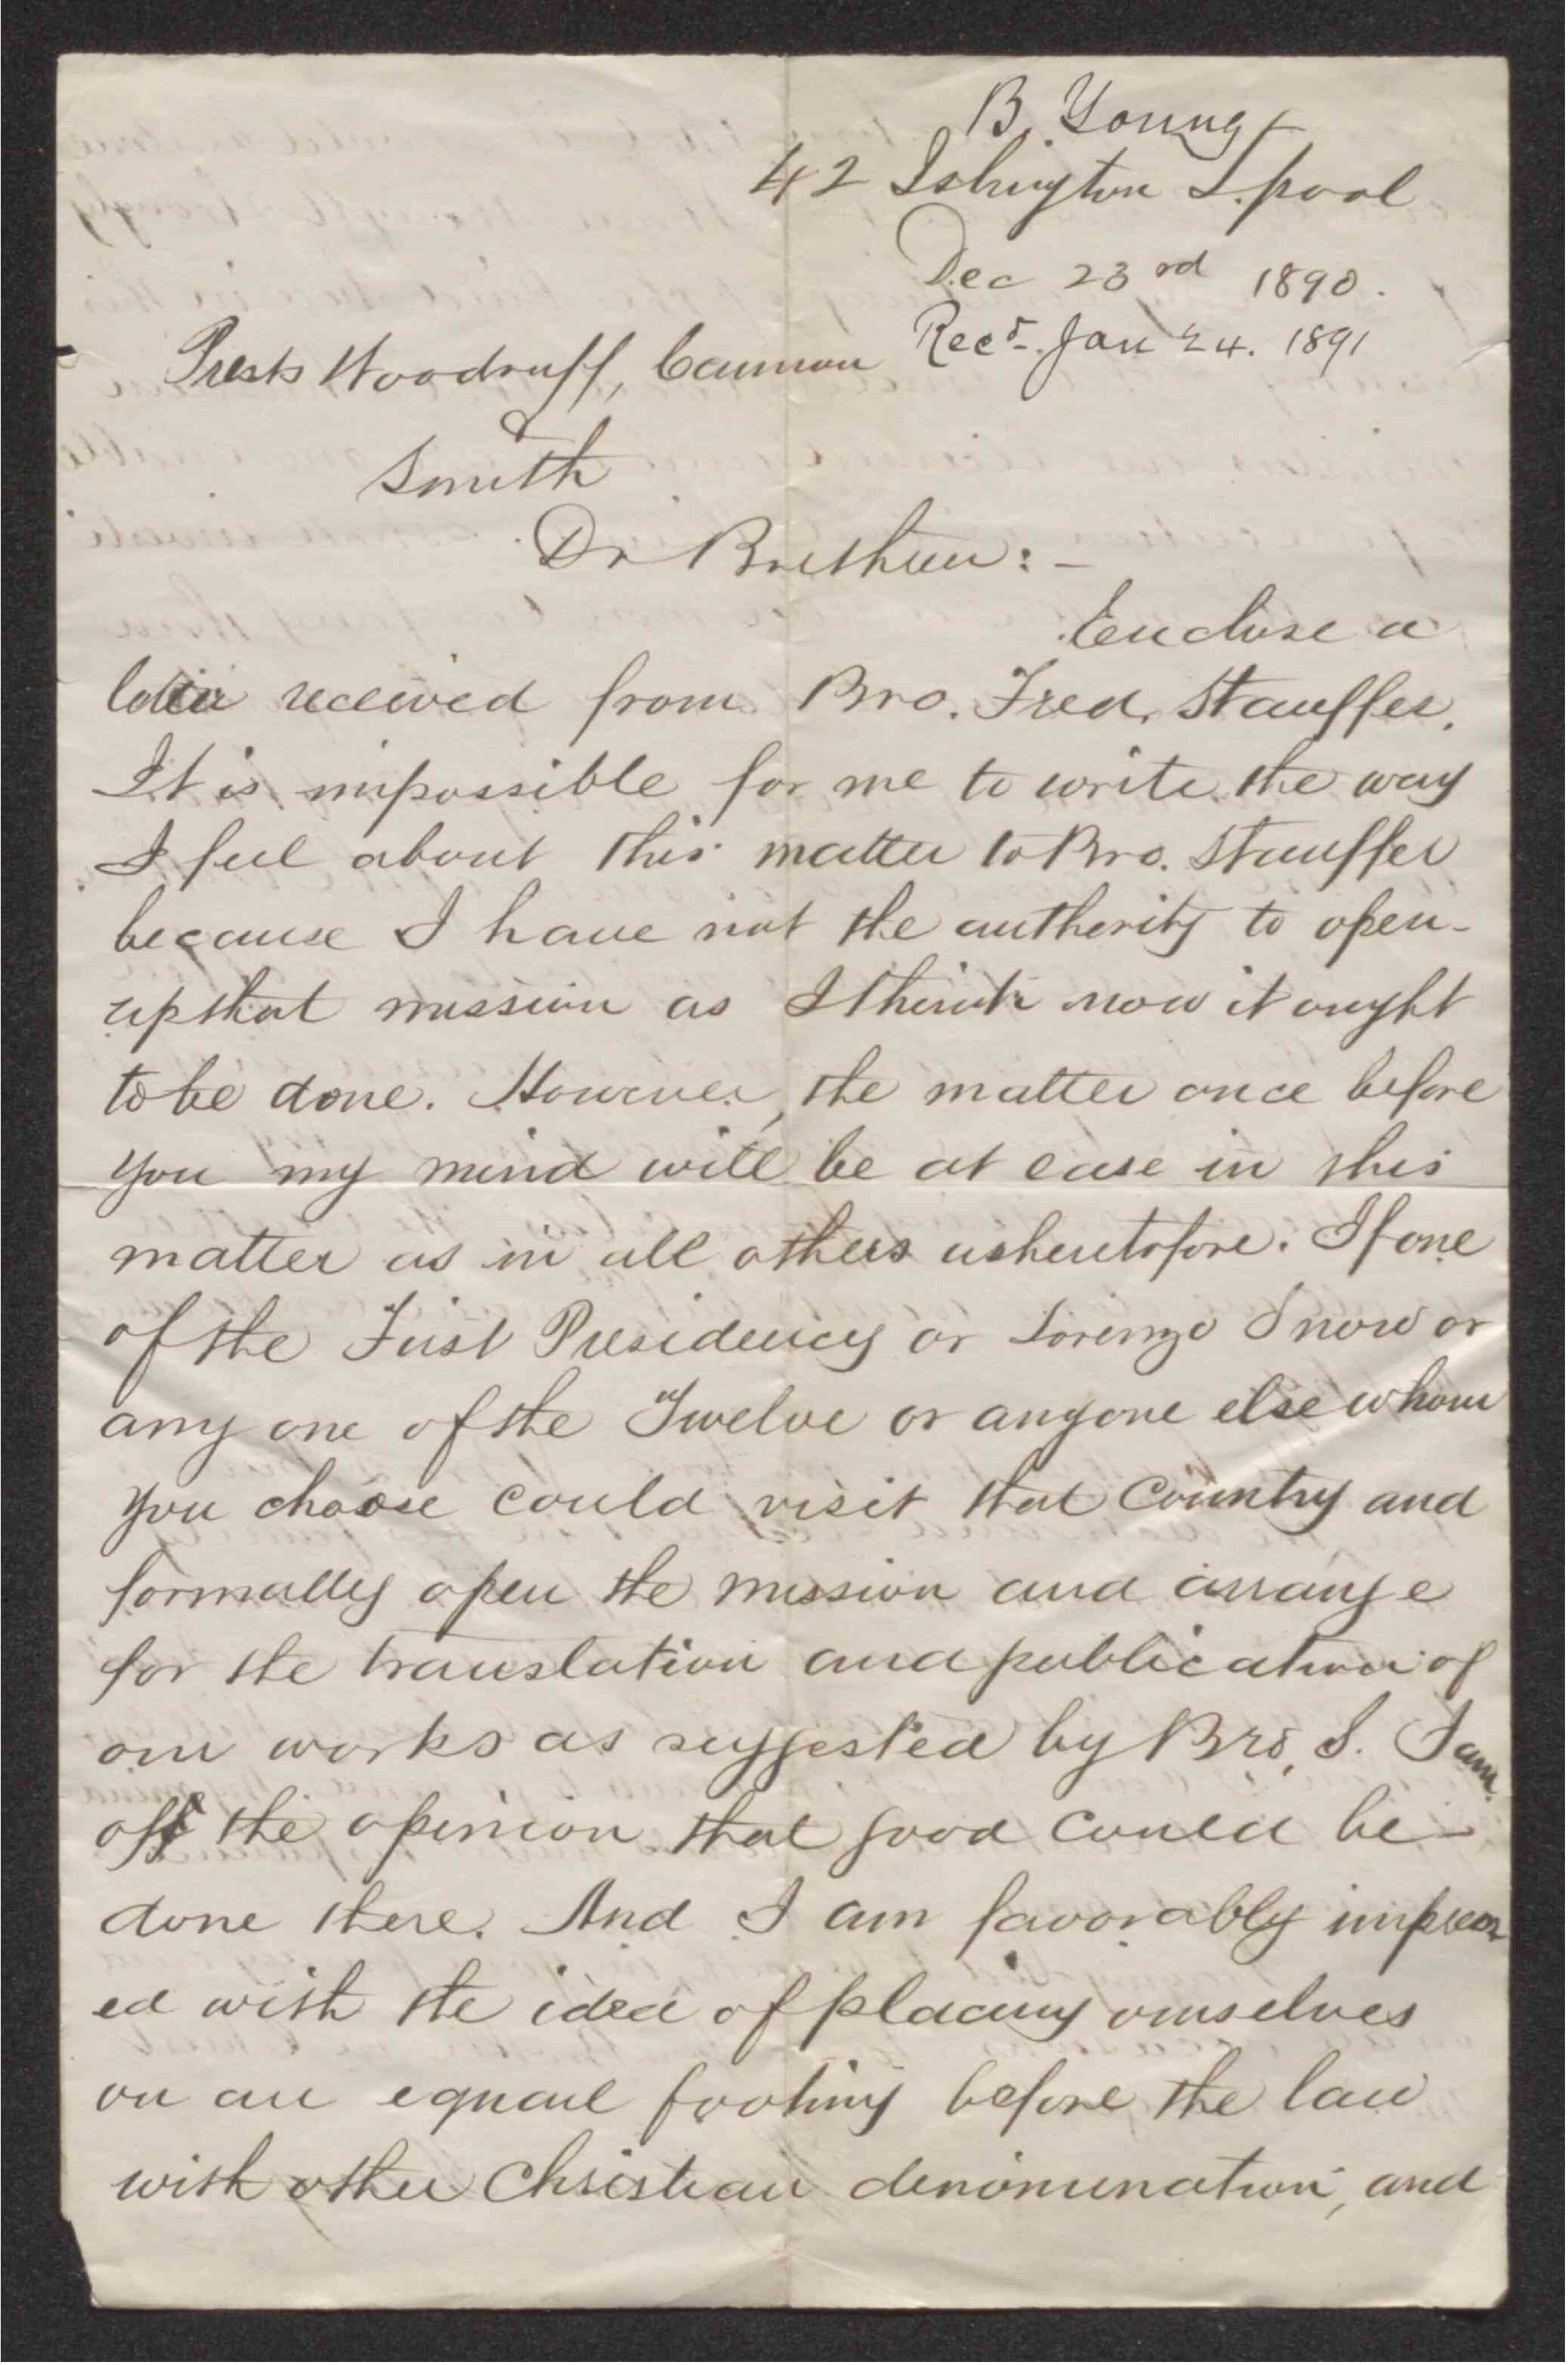 B. Young
42 Islington L.pool
Dec 23rd 1890.
Recd. Jan 24. 1891
Prests Woodruff, Cannon
&
Smith
Dr Brethren: -
Enclose a
letter received from Bro. Fred. Stauffer.
It is impossible for me to write the way
I feel about this matter to Bro. Stauffer
because I have not the authority to open-
up that mission as I think now it ought
to be done. However, the matter once before
you my mind will be at ease in this
matter as in all others as heretofore. If one
of the First Presidency or Lorenzo Snow or
any one of the Twelve or anyone else whom
you choose could visit that Country and
formally open the mission and arrange
for the translation and publication of
our works as suggested by Bro. S. I am
of the opinion that good could be
done there. And I am favorably impress
ed with the idea of placing ourselves
on an equal footing before the law
with other Christian denomination, and